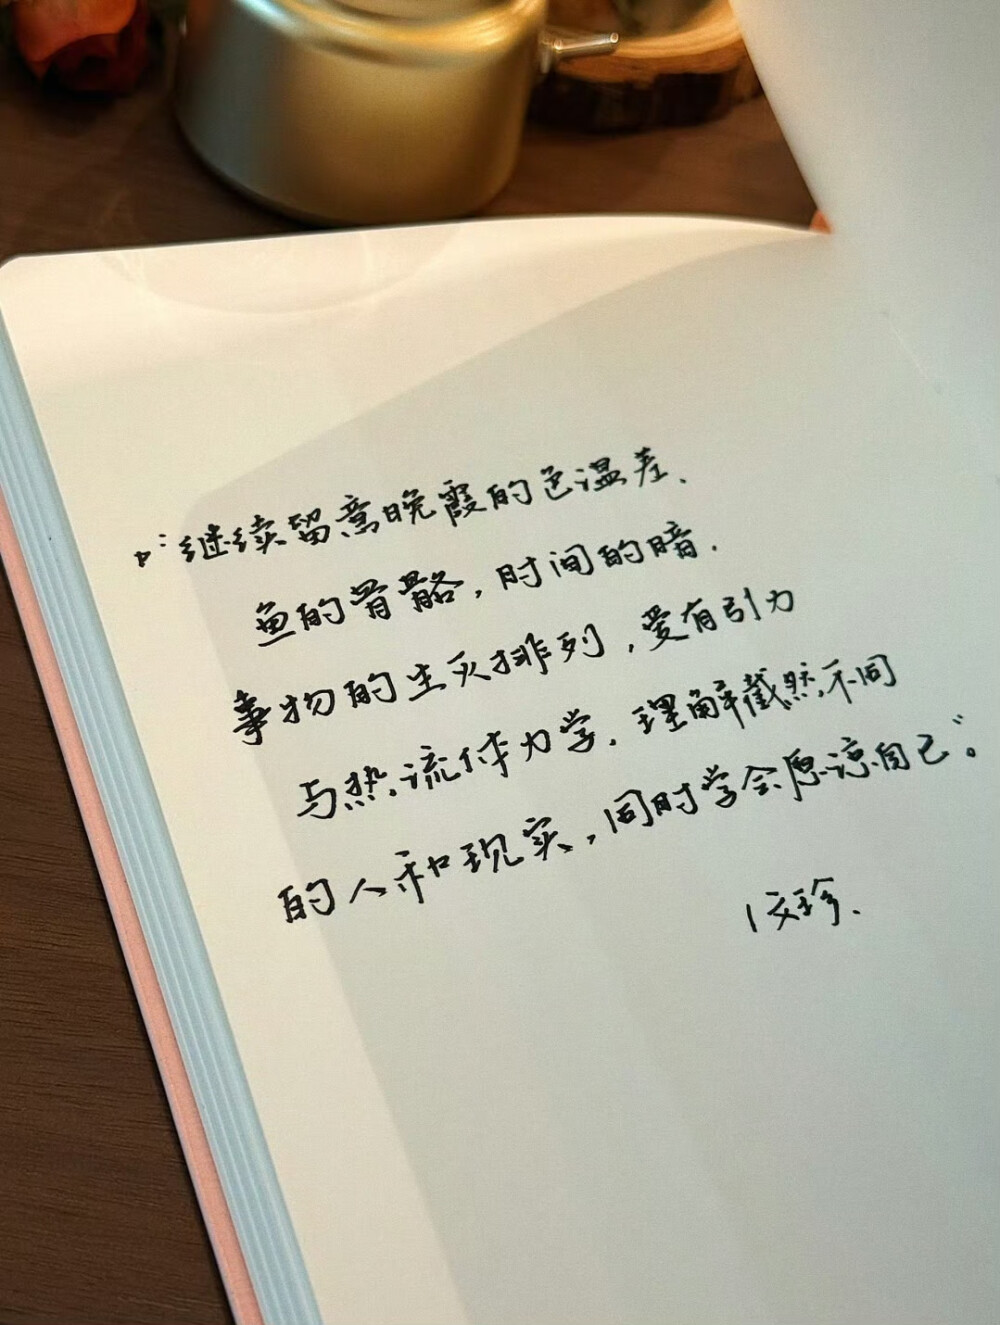 “继续留意晚霞的色温差、
鱼的骨骼，时间的暗.
事物的生灭排列，爱有引力
与热.流体力学.理解截然不同
的人和现实，同时学会原谅自己”。
文珍.